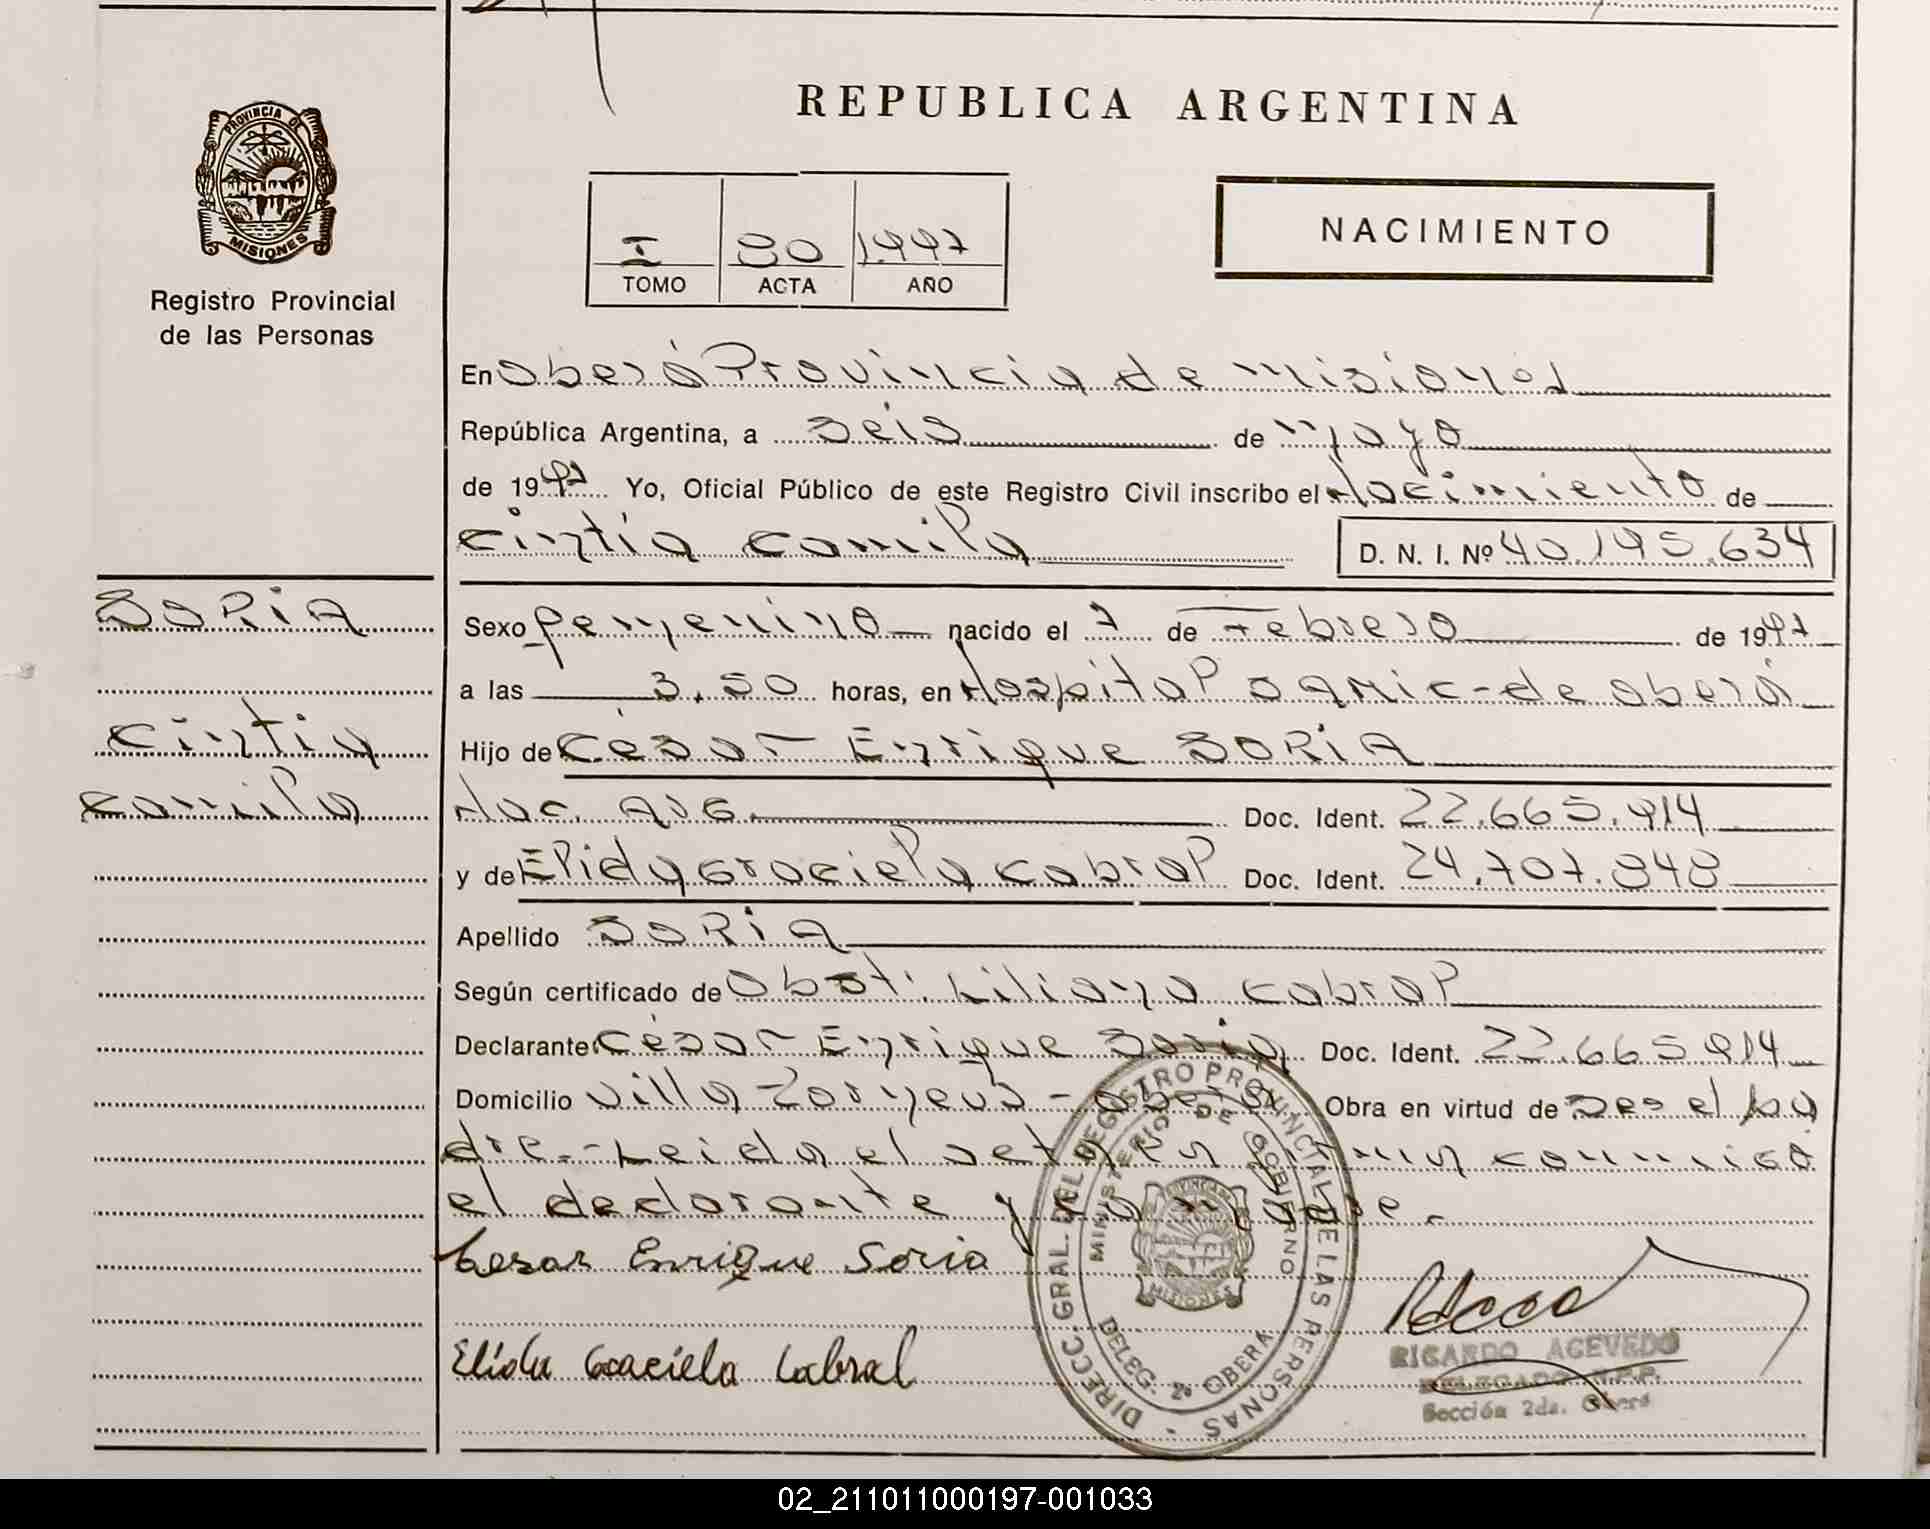 REPUBLICA ARGENTINA
PROVINCIA DE
MISIONES
Registro Provincial
de las Personas
I 80 1.997
TOMO ACTA AÑO
NACIMIENTO
En Oberá Provincia de misiones
República Argentina, a seis de mayo
de 1997 Yo, Oficial Público de este Registro Civil inscribo el Nacimiento de
cintia camila D. N. I. Nº 40.195.634
SORIA
cintia
camila
Sexo femenino nacido el 7 de Febrero de 1997
a las 3,50 horas, en Hospital samic-de oberá
Hijo de César Enrique SORIA
Nac. arg. Doc. Ident. 22.665.914
y de Elida graciela cabral Doc. Ident. 24.707.848
Apellido SORIA
Según certificado de Obst: Liliana cabral
Declarante César Enrique Soria Doc. Ident. 22.665.914
Domicilio villa - oberá Obra en virtud de ser el pa
dre.- Leida el
el declarante y la madre.-
Cesar Enrique Soria
Elida Graciela Cabral
DIRECC. GRAL. DEL REGISTRO PROVINCIAL DE LAS PERSONAS -
MINISTERIO DE GOBIERNO
MISIONES
DELEG. 2º OBERA
RICARDO ACEVEDO
DELEGADO R.P.P.
Sección 2da. Oberá
02_211011000197-001033